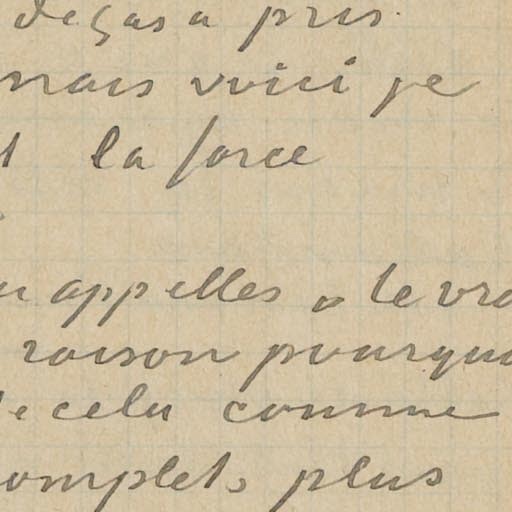 Degas a pris
mais voici je
la force
appelles "le vra
raison pourquo
de cela comme
complet, plus